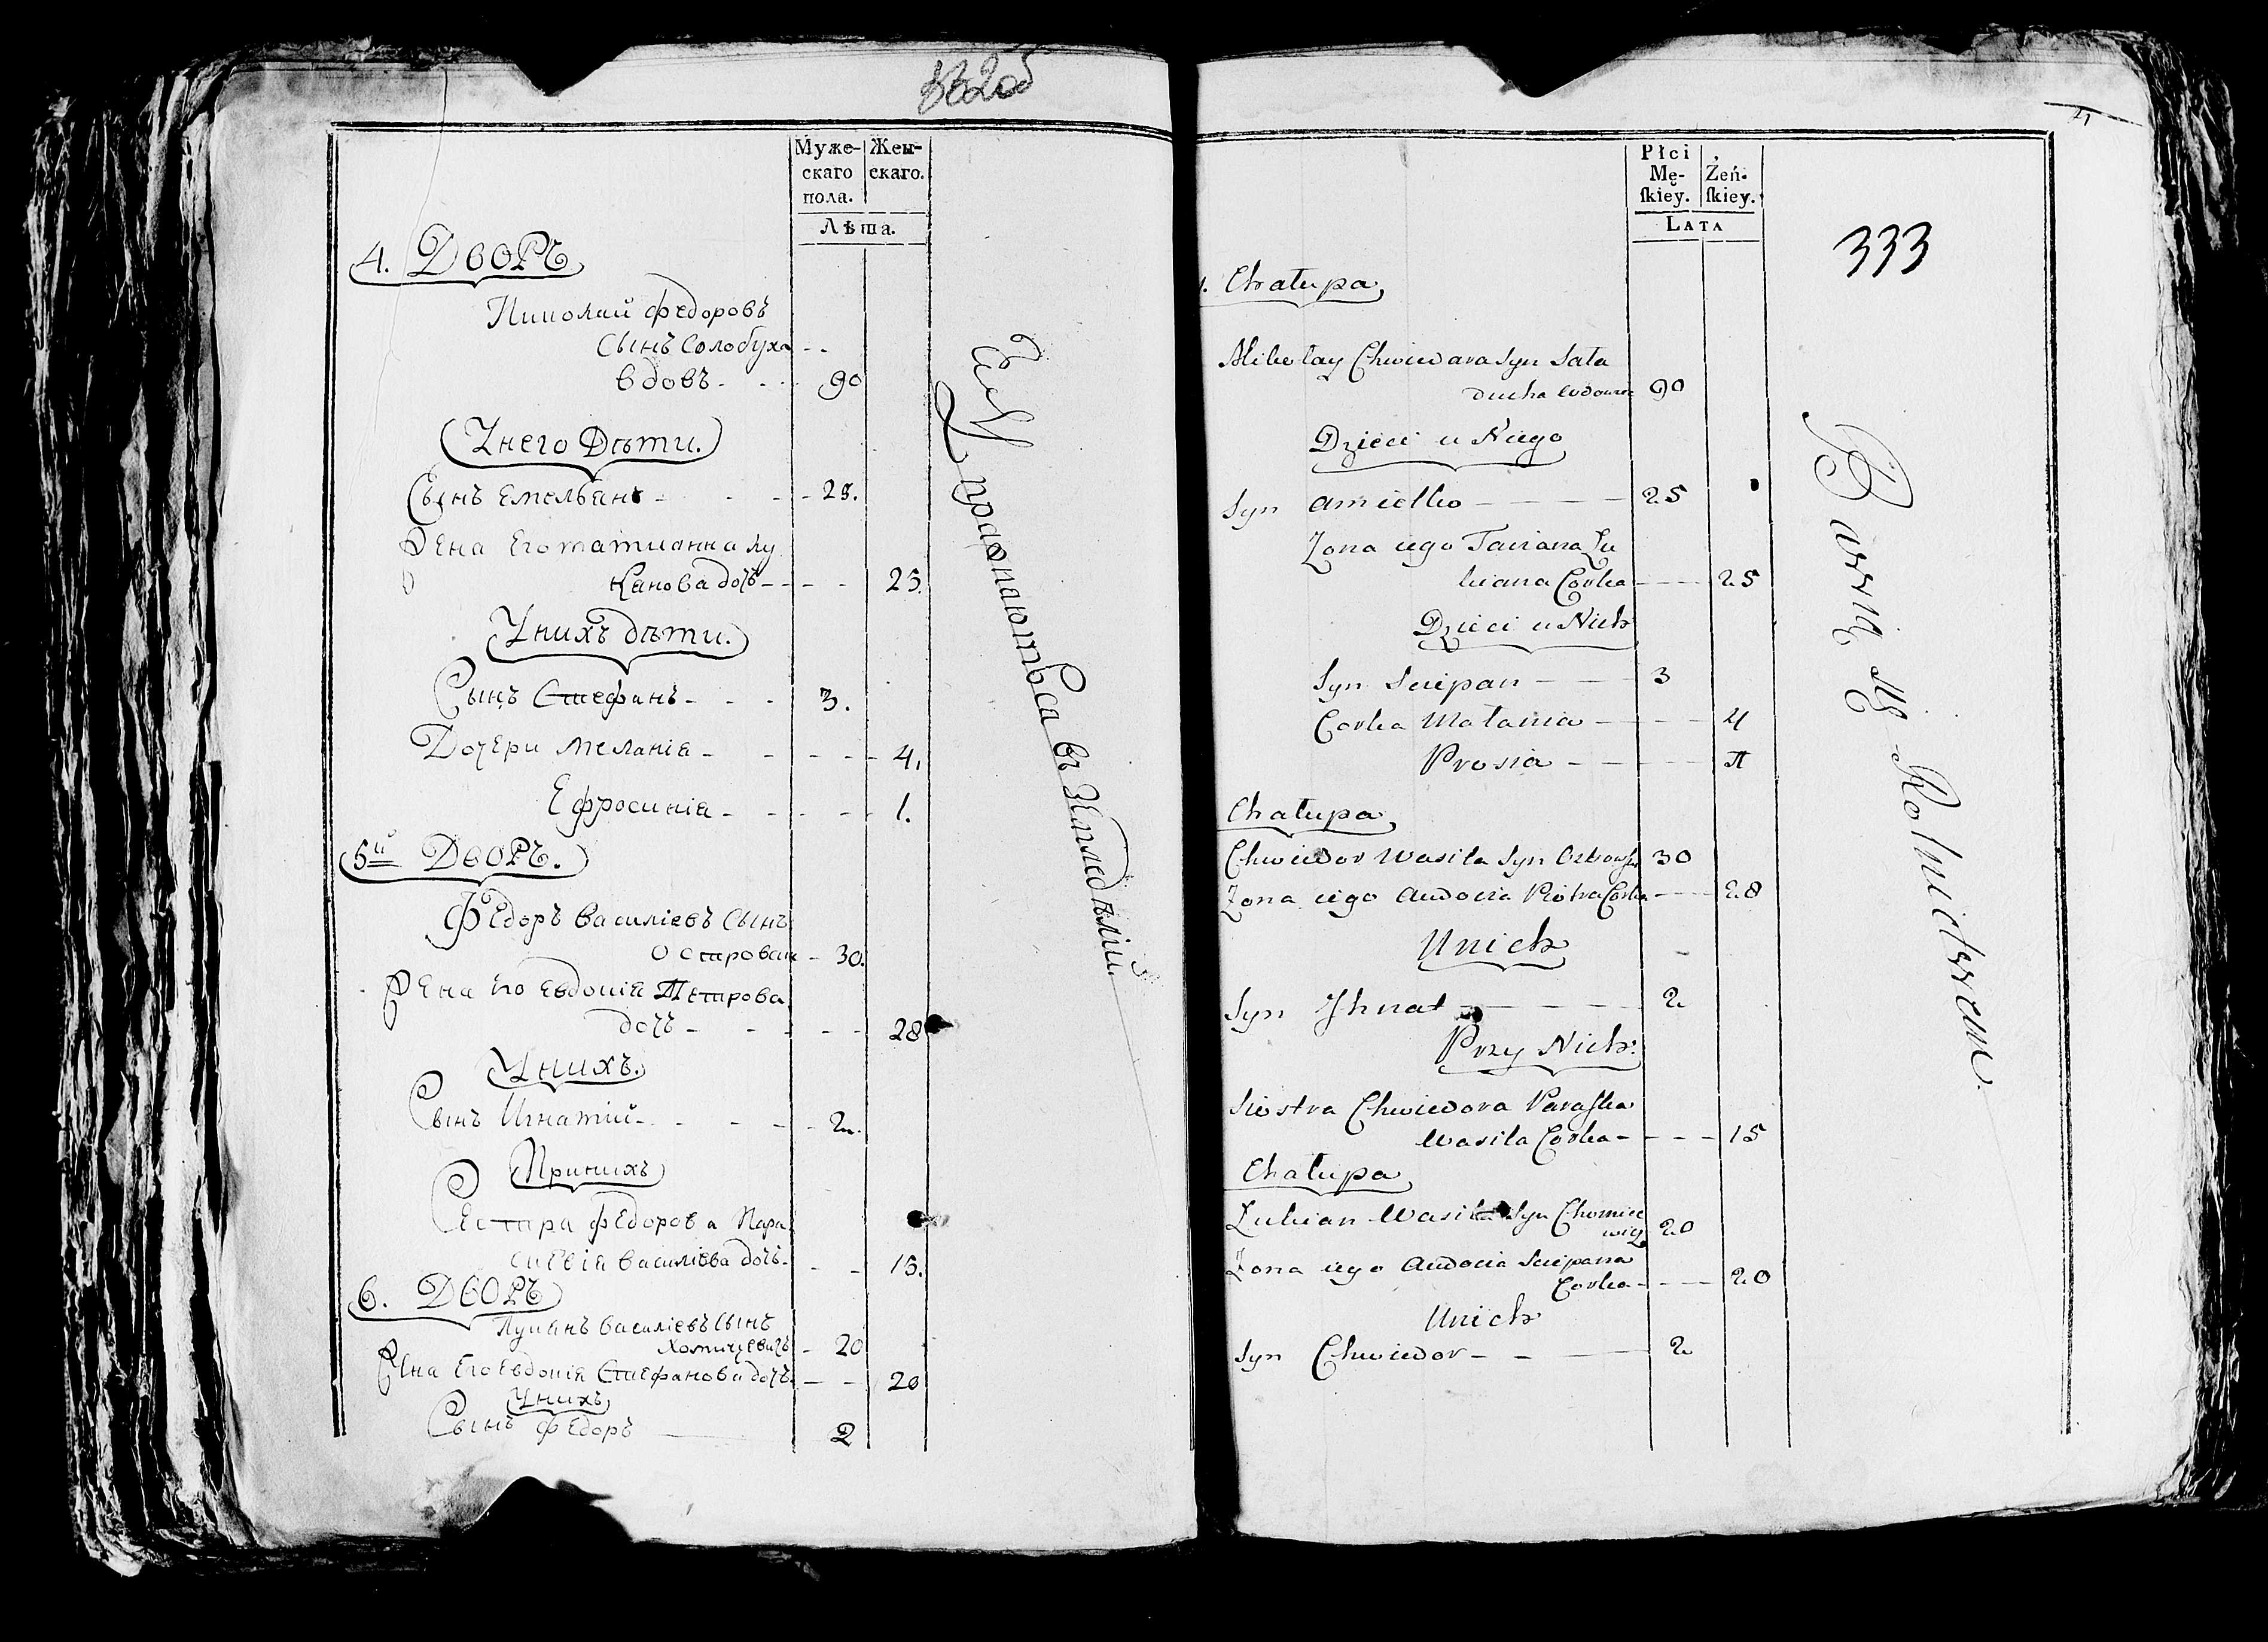 Муже-
скаго
пола.
Жен-
скаго.
Лѣта.
4. Дворъ
Николай Федоровъ
Сынъ Солодуха
вдовъ - - - 90
Унего Дѣти.
Сынъ Емельянъ - - - 25.
Жена Его татианна лу
Кянова дочь - - - 25.
Унихъ дѣти.
Сынъ Стефанъ - - - 3.
Дочери Меланія - - - 4.
Ефросинія - - - 1.
5й Дворъ.
Федоръ Василіевъ Сынъ
30.
Жена Его Евдокія Петрова
дочь - - - 28
Унихъ.
Сынъ Игнатій - - - 2.
Принихъ
Сестра Федорова Пара
скевія Василіева дочь - - - 15.
6. Дворъ
Лукянъ Василіевъ Сынъ
Хомичевичъ - 20
Жена Его Евдокія Стефанова дочь. - - 20
Унихъ
Сынъ Федоръ 2
упражняются въ Земледѣліи.
4
333
Płci
Mę-
ſkiey.
Żeń-
ſkiey.
Lata
Chałupa
Mikołay Chwiedora Syn Sało
ducha wdowiec 90
Dzieci u Niego
Syn Amielko - - - 25
Zona iego Taciana Łu
kiana Corka - - - 25
Dzieci u Nich
Syn Sciepan - - - 3
Corka Małania - - - 4
Prosia - - -
Chałupa
Chwiedor Wasila Syn 30
Zona iego Audocia Piotra Corka - - - 28
Unich
Syn Ihnat - - - 2
Przy Nich:
Siostra Chwiedora Paraſka
Wasila Corka - - - 15
Chałupa
Łukian Wasila Syn Chomice
wicz 20
Zona iego Audocia Sciepana
Corka - - - 20
Unich
Syn Chwiedor - - - 2
Bawią się Rolnictwem